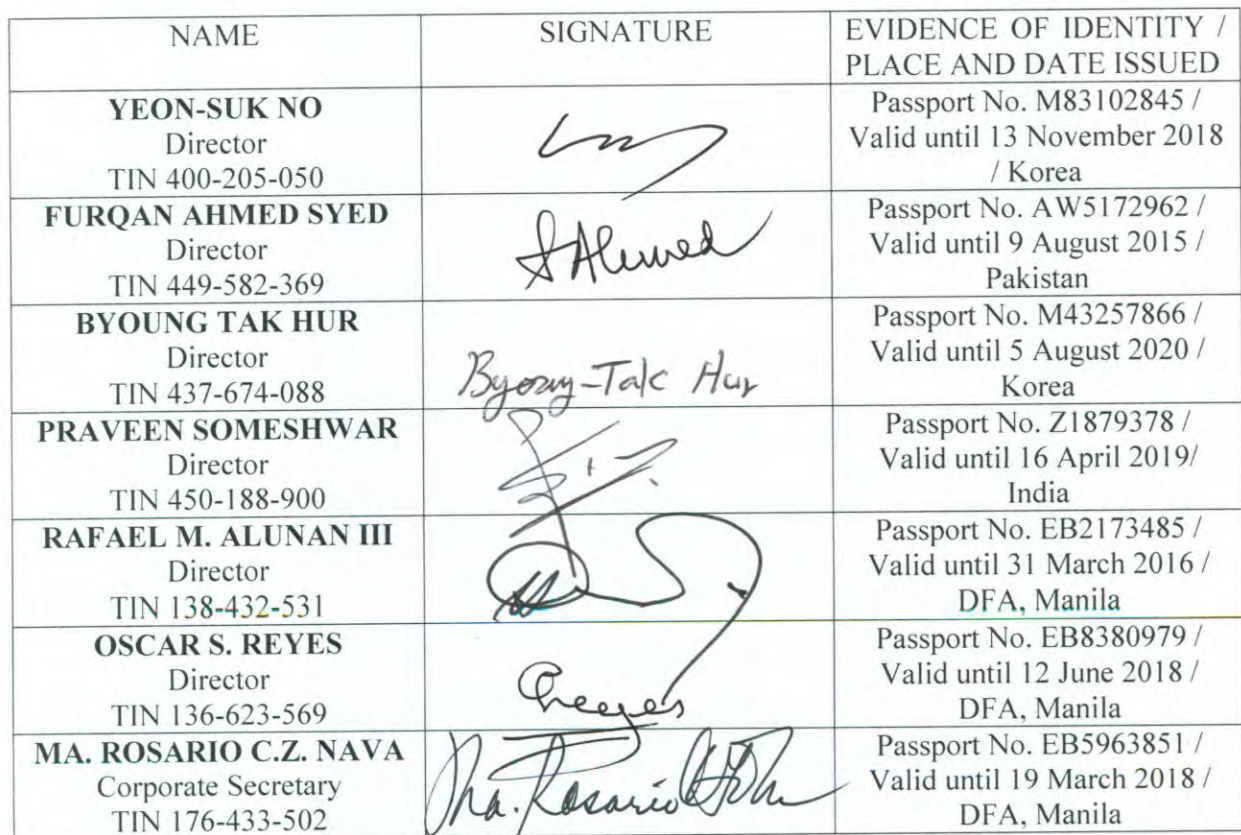 NAME
SIGNATURE
EVIDENCE OF IDENTITY /
PLACE AND DATE ISSUED
YEON-SUK NO
Director
TIN 400-205-050
Passport No. M83102845 /
Valid until 13 November 2018
/ Korea
FURQAN AHMED SYED
Director
TIN 449-582-369
SAhmed
Passport No. AW5172962 /
Valid until 9 August 2015 /
Pakistan
BYOUNG TAK HUR
Director
TIN 437-674-088
Byoung-Tak Hur
Passport No. M43257866 /
Valid until 5 August 2020 /
Korea
PRAVEEN SOMESHWAR
Director
TIN 450-188-900
Passport No. Z1879378 /
Valid until 16 April 2019/
India
RAFAEL M. ALUNAN III
Director
TIN 138-432-531
Passport No. EB2173485 /
Valid until 31 March 2016 /
DFA, Manila
OSCAR S. REYES
Director
TIN 136-623-569
Passport No. EB8380979 /
Valid until 12 June 2018 /
DFA, Manila
MA. ROSARIO C.Z. NAVA
Corporate Secretary
TIN 176-433-502
Ma. Rosario
Passport No. EB5963851 /
Valid until 19 March 2018 /
DFA, Manila